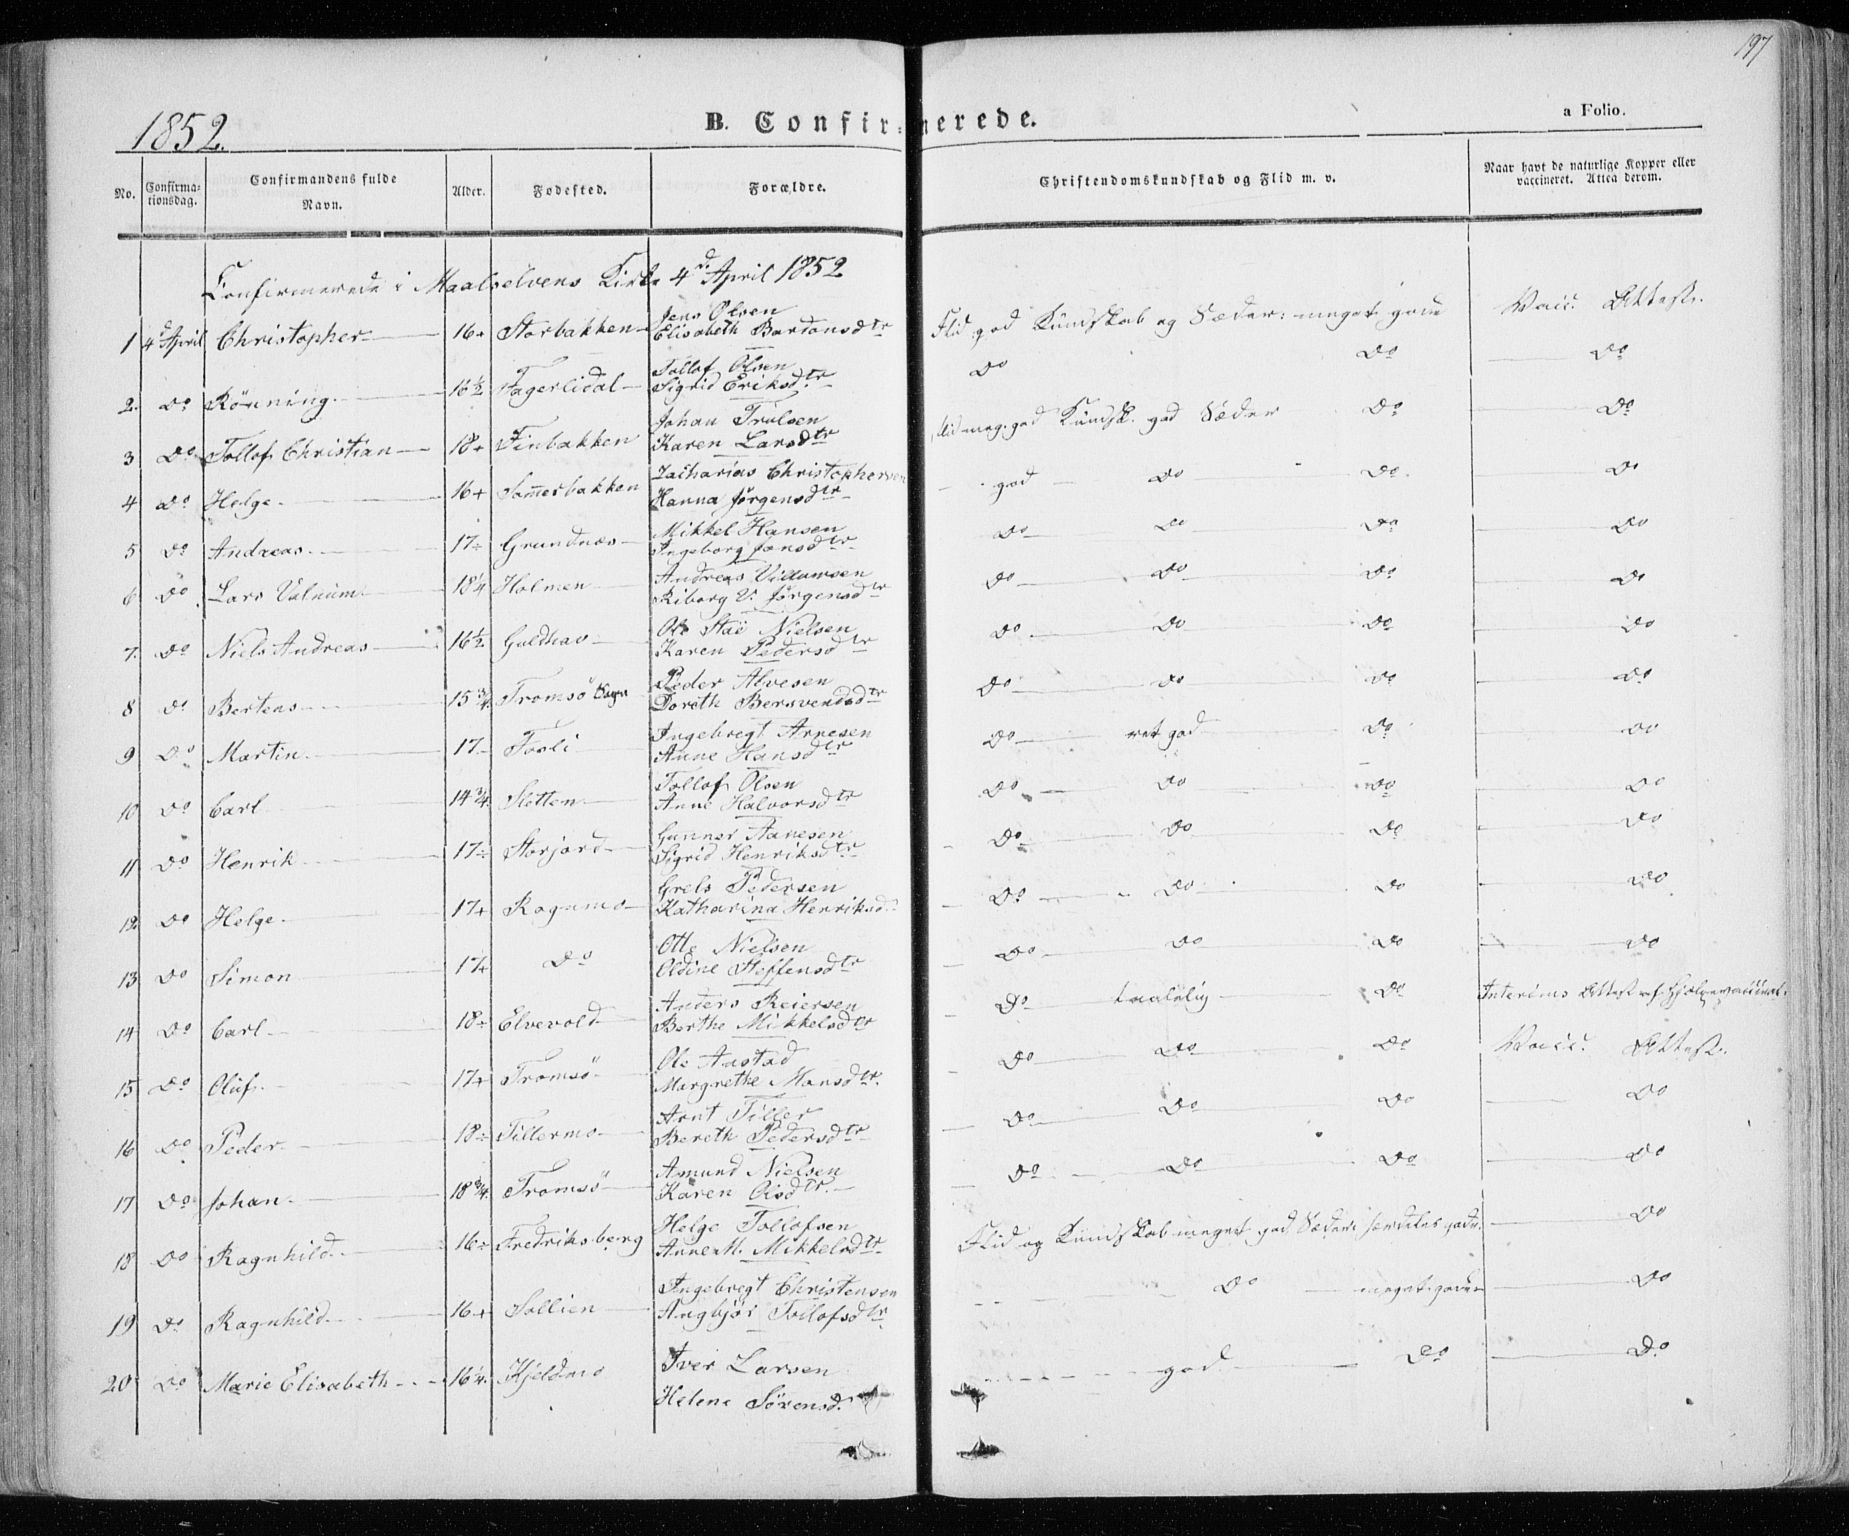 197
1852.
B. Confirmerede.
a Folio.
No.
Confirmationsdag.
Confirmandens fulde Navn.
Alder.
Fødested.
Forældre.
Christendomskundskab og Flid m. v.
Naar havt de naturlige Kopper eller vaccineret. Attest derom.
Confirmerede i Maalselvens Kirke 4d. April 1852
1 4d April Christopher 16+ Storbakken Jens Olsen Elisabeth Bardonsdtr Flid god Kundskab og Sæder: meget gode Vacc. Attest.
2. Do Rönning. 16½ Fagerlidal Tollof Olsen Sigrid Eriksd.tr Do Do Do
3 Do Tollof Christian 18+ Finbakken Johan Trulsen Karen Larsdtr Flid meg. god Kundsk. god Sæder Do Do
4 Do Helge 16+ Somerbakken Zacharias Christophersen Hanna Jörgensdtr god Do Do Do
5 Do Andreas 17÷ Grundnæs Mikkel Hansen Ingeborg Jensdtr Do Do Do Do
6 Do Lars 18¼ Holmen Andreas Villumsen Riborg V. Jörgensdtr Do Do Do Do
7. Do Niels Andreas 16½ Guldhav Ole Nielsen Karen Pedersdtr Do Do Do Do
8 Do Bertens 15¾ Tromsö Sogn Peder Alvesen Doreth Bersvendsdtr Do Do Do Do
9 Do Martin 17 Fosli Ingebregt Arnesen Anne Hansdtr Do ret god Do Do
10 Do Carl 14¾ Sletten Tollof Olsen Anne Halvorsdtr Do Do Do Do
11 Do Henrik 17÷ Storjord Gunner Aanesen Sigrid Henriksdtr Do Do Do Do
12. Do Helge 17+ Rognmo Grels Pedersen Katharina Henriksd. Do Do Do Do
13 Do Simon 17+ Do Otte Nielsen Oldine Steffensdtr Do Do Do Do
14 Do Carl 18÷ Elvevold Anders Reiersen Berthe Mikkelsdtr Do taalelig Do Interims Attest
15 Do Oluf 17+ Tromsö Ole Aastad Margrethe Monsdtr. Do Do Do Vacc. Attest.
16 Do Peder 18÷ Tillermo Arnt Tiller Bereth Pedersdtr Do Do Do Do
17 Do Johan 18¾ Tromsö Amund Nielsen Karen Oisdtr. Do Do Do Do
18 Do Ragnhild 16÷ Fredriksberg Helge Tollofsen Anne M. Mikkelsdtr Flid og Kundskab meget god Sæder: særdeles gode. Do
19 Do Ragnhild 16+ Sollien Ingebregt Christensen Angbjör Tollofsdtr Do meget gode Do
20 Do Marie Elisabeth 16¼. Kjeldmo Iver Larsen Helene Sörensd. god Do Do